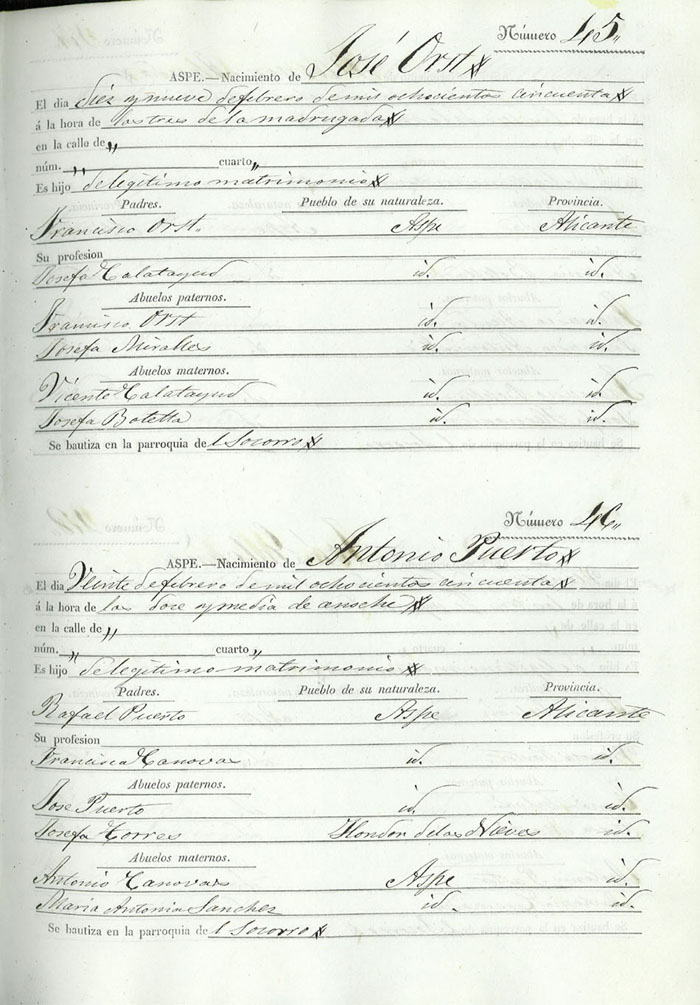 Número 45,,
ASPE.—Nacimiento de José Orst
El dia diez y nueve de febrero de mis ochocientos cincuenta
á la hora de las tres de la madrugada
en la calle de ,,
núm. ,, cuarto ,,
Es hijo de legitimo matrimonio
Padres. Pueblo de su naturaleza. Provincia.
Francisco Orst. Aspe Alicante
Su profesion
Josefa Calatayud id. id.
Abuelos paternos.
Francisco Orst id. id.
Josefa Miralles id. id.
Abuelos maternos.
Vicente Calatayud id. id.
Josefa Botella id. id.
Se bautiza en la parroquia del Socorro
Número 46,,
ASPE.—Nacimiento de Antonio Puerto
El dia Veinte de febrero de mil ochocientos cincuenta
á la hora de las doce y media de anoche
en la calle de ,,
núm. ,, cuarto ,,
Es hijo de legitimo matrimonio
Padres. Pueblo de su naturaleza. Provincia.
Rafael Puerto Aspe Alicante
Su profesion
Francisca Canovas id. id.
Abuelos paternos.
Jose Puerto id. id.
Josefa Torres Hondon delas Nieves id.
Abuelos maternos.
Antonio Canovas Aspe id.
Maria Antonia Sanchez id. id.
Se bautiza en la parroquia del Socorro